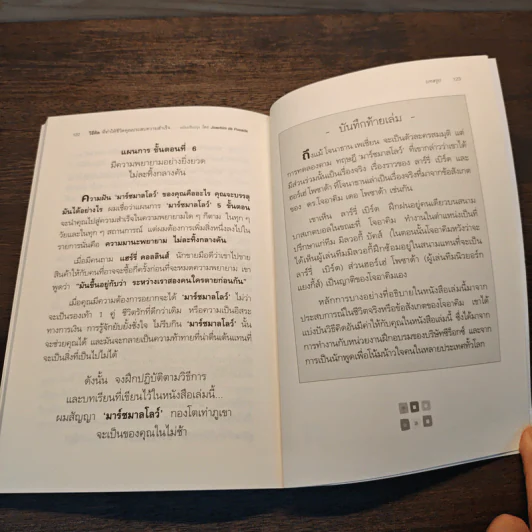 แผนการ ขั้นตอนที่ 6
มีความพยายามอย่างยิ่งยวด
ไม่ละทิ้งกลางคัน
ความฝัน 'มาร์ชมาลโลว์' ของคุณคืออะไร คุณจะบรรลุ
มันได้อย่างไร ผมเชื่อว่าแผนการ 'มาร์ชมาลโลว์' 5 ขั้นตอน
จะนำคุณไปสู่ความสำเร็จในความพยายามใด ๆ ก็ตาม ในทุก ๆ
วันและในทุก ๆ สถานการณ์ แต่ผมต้องการเพิ่มสิ่งหนึ่งลงไปใน
รายการนั่นคือ ความมานะพยายาม ไม่ละทิ้งกลางคัน
เมื่อมีคนถาม แฮร์รี่ คอลลินส์ นักขายมือดีว่าเขาไปขาย
สินค้าให้กับคนที่อาจจะซื้อกี่ครั้งก่อนที่จะหมดความพยายาม เขา
พูดว่า "มันขึ้นอยู่กับว่า ระหว่างเราสองคนใครตายก่อนกัน"
เมื่อคุณมีความต้องการอยากจะได้ 'มาร์ชมาลโลว์' ไม่ว่า
จะเป็นรองเท้า 1 คู่ ชีวิตรักที่ดีกว่าเดิม หรือความเป็นอิสระ
ทางการเงิน การรู้จักยับยั้งชั่งใจ ไม่รีบกิน 'มาร์ชมาลโลว์' นั้น
จะช่วยคุณได้ และมันจะกลายเป็นความท้าทายที่น่าตื่นเต้นแทนที่
จะเป็นสิ่งที่เป็นไปไม่ได้
ดังนั้น จงฝึกปฏิบัติตามวิธีการ
และบทเรียนที่เขียนไว้ในหนังสือเล่มนี้...
ผมสัญญา 'มาร์ชมาลโลว์' กองโตเท่าภูเขา
จะเป็นของคุณในไม่ช้า
- บันทึกท้ายเล่ม -
ถึงแม้ โจนาธาน เพเชี่ยน จะเป็นตัวละครสมมุติ แต่
การทดลองตาม ทฤษฎี 'มาร์ชมาลโลว์' ที่เขากล่าวว่าเขาได้
มีส่วนร่วมนั้นเป็นเรื่องจริง เรื่องราวของ ลาร์รี่ เบิร์ด และ
ฮอร์เฮ่ โพซาด้า ที่โจนาธานเล่าเป็นเรื่องจริงที่มาจากข้อสังเกต
ของ ดร.โจอาคิม เดอ โพซาด้า เช่นกัน
เขาเห็น ลาร์รี่ เบิร์ด ฝึกฝนอยู่คนเดียวบนสนาม
บาสเกตบอลในขณะที่ โจอาคิม ทำงานในตำแหน่งเป็นที่
ปรึกษาแก่ทีม มิลวอกี้ บัคส์ (ในตอนนั้นโจอาคิมหวังว่าจะ
ได้เห็นผู้เล่นทีมมิลวอกี้ฝึกซ้อมอยู่ในสนามแทนที่จะเป็น
ลาร์รี่ เบิร์ด) ส่วนฮอร์เฮ่ โพซาด้า (ผู้เล่นทีมนิวยอร์ก
แยงกี้ส์) เป็นญาติของโจอาคิมเอง
หลักการบางอย่างที่อธิบายในหนังสือเล่มนี้มาจาก
ประสบการณ์ในชีวิตจริงหรือข้อสังเกตของโจอาคิม เขาได้
แบ่งปันวิธีคิดอันมีค่าให้กับคุณในหนังสือเล่มนี้ ซึ่งได้มาจาก
การทำงานกับหน่วยงานฝึกอบรมของบริษัทซีร็อกซ์ และจาก
การเป็นนักพูดเพื่อโน้มน้าวใจคนในหลายประเทศทั่วโลก